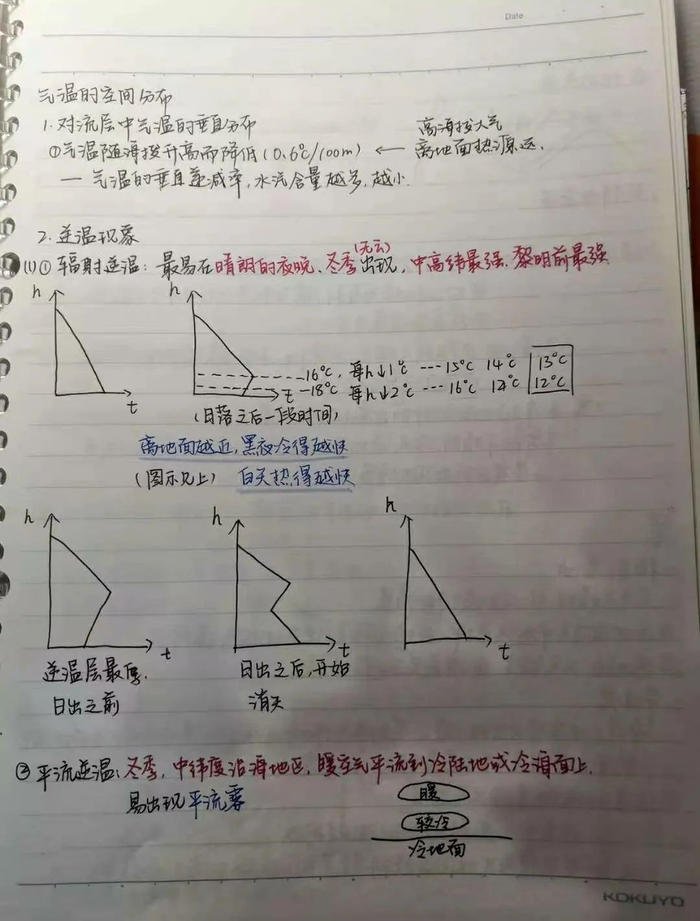 Date
气温的空间分布
1.对流层中气温的垂直分布
①气温随海拔升高而降低(0.6℃/100m) ← 高海拔大气离地面热源远.
— 气温的垂直递减率,水汽含量越多,越小.
2.逆温现象
(1)①辐射逆温:最易在晴朗的夜晚、冬季(无云)出现,中高纬最强.黎明前最强
h h
16℃,每h↓1℃ --- 15℃ 14℃ 13℃
t t 18℃ 每h↓2℃ --- 16℃ 14℃ 12℃
(日落之后一段时间)
离地面越近,黑夜冷得越快
(图示见上) 白天热得越快
h h h
t t t
逆温层最厚. 日出之后,开始
日出之前 消失
②平流逆温:冬季,中纬度沿海地区,暖空气平流到冷陆地或冷海面上.
易出现平流雾
暖
较冷
冷地面
KOKUYO